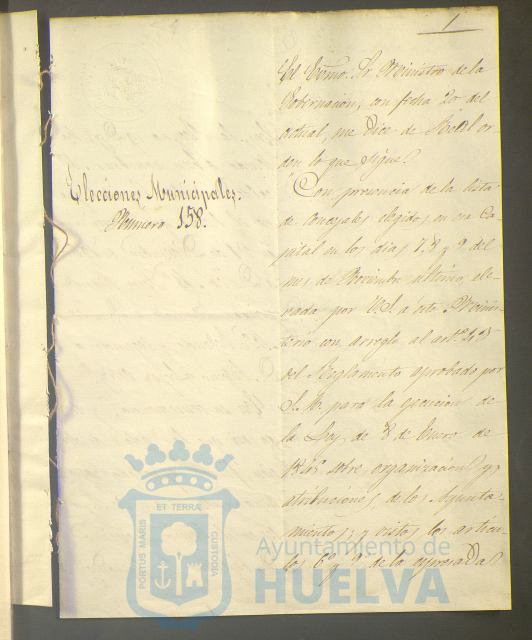 1
Elecciones Municipales.
Numero 158.
El Exmo. Sr. Ministro de la
Gobernacion, con fecha 20 del
actual, me dice de Real or-
den lo que sigue.
"Con presencia de la lista
de concejales elegidos en esa Ca-
pital en los dias 7, 8 y 9 del
mes de Noviembre último, ele-
vada por V.S. a este Minis-
terio con arreglo al artº 45
del Reglamento aprobado por
S. M. para la egecucion de
la Ley de 8 de Enero de
1845 sobre organizacion y
atribuciones de los Ayunta-
mientos; y vistos los articu-
los 6º y 9 de la espresada
PORTUS MARIS ET TERRAE CUSTODIA
Ayuntamiento de
HUELVA